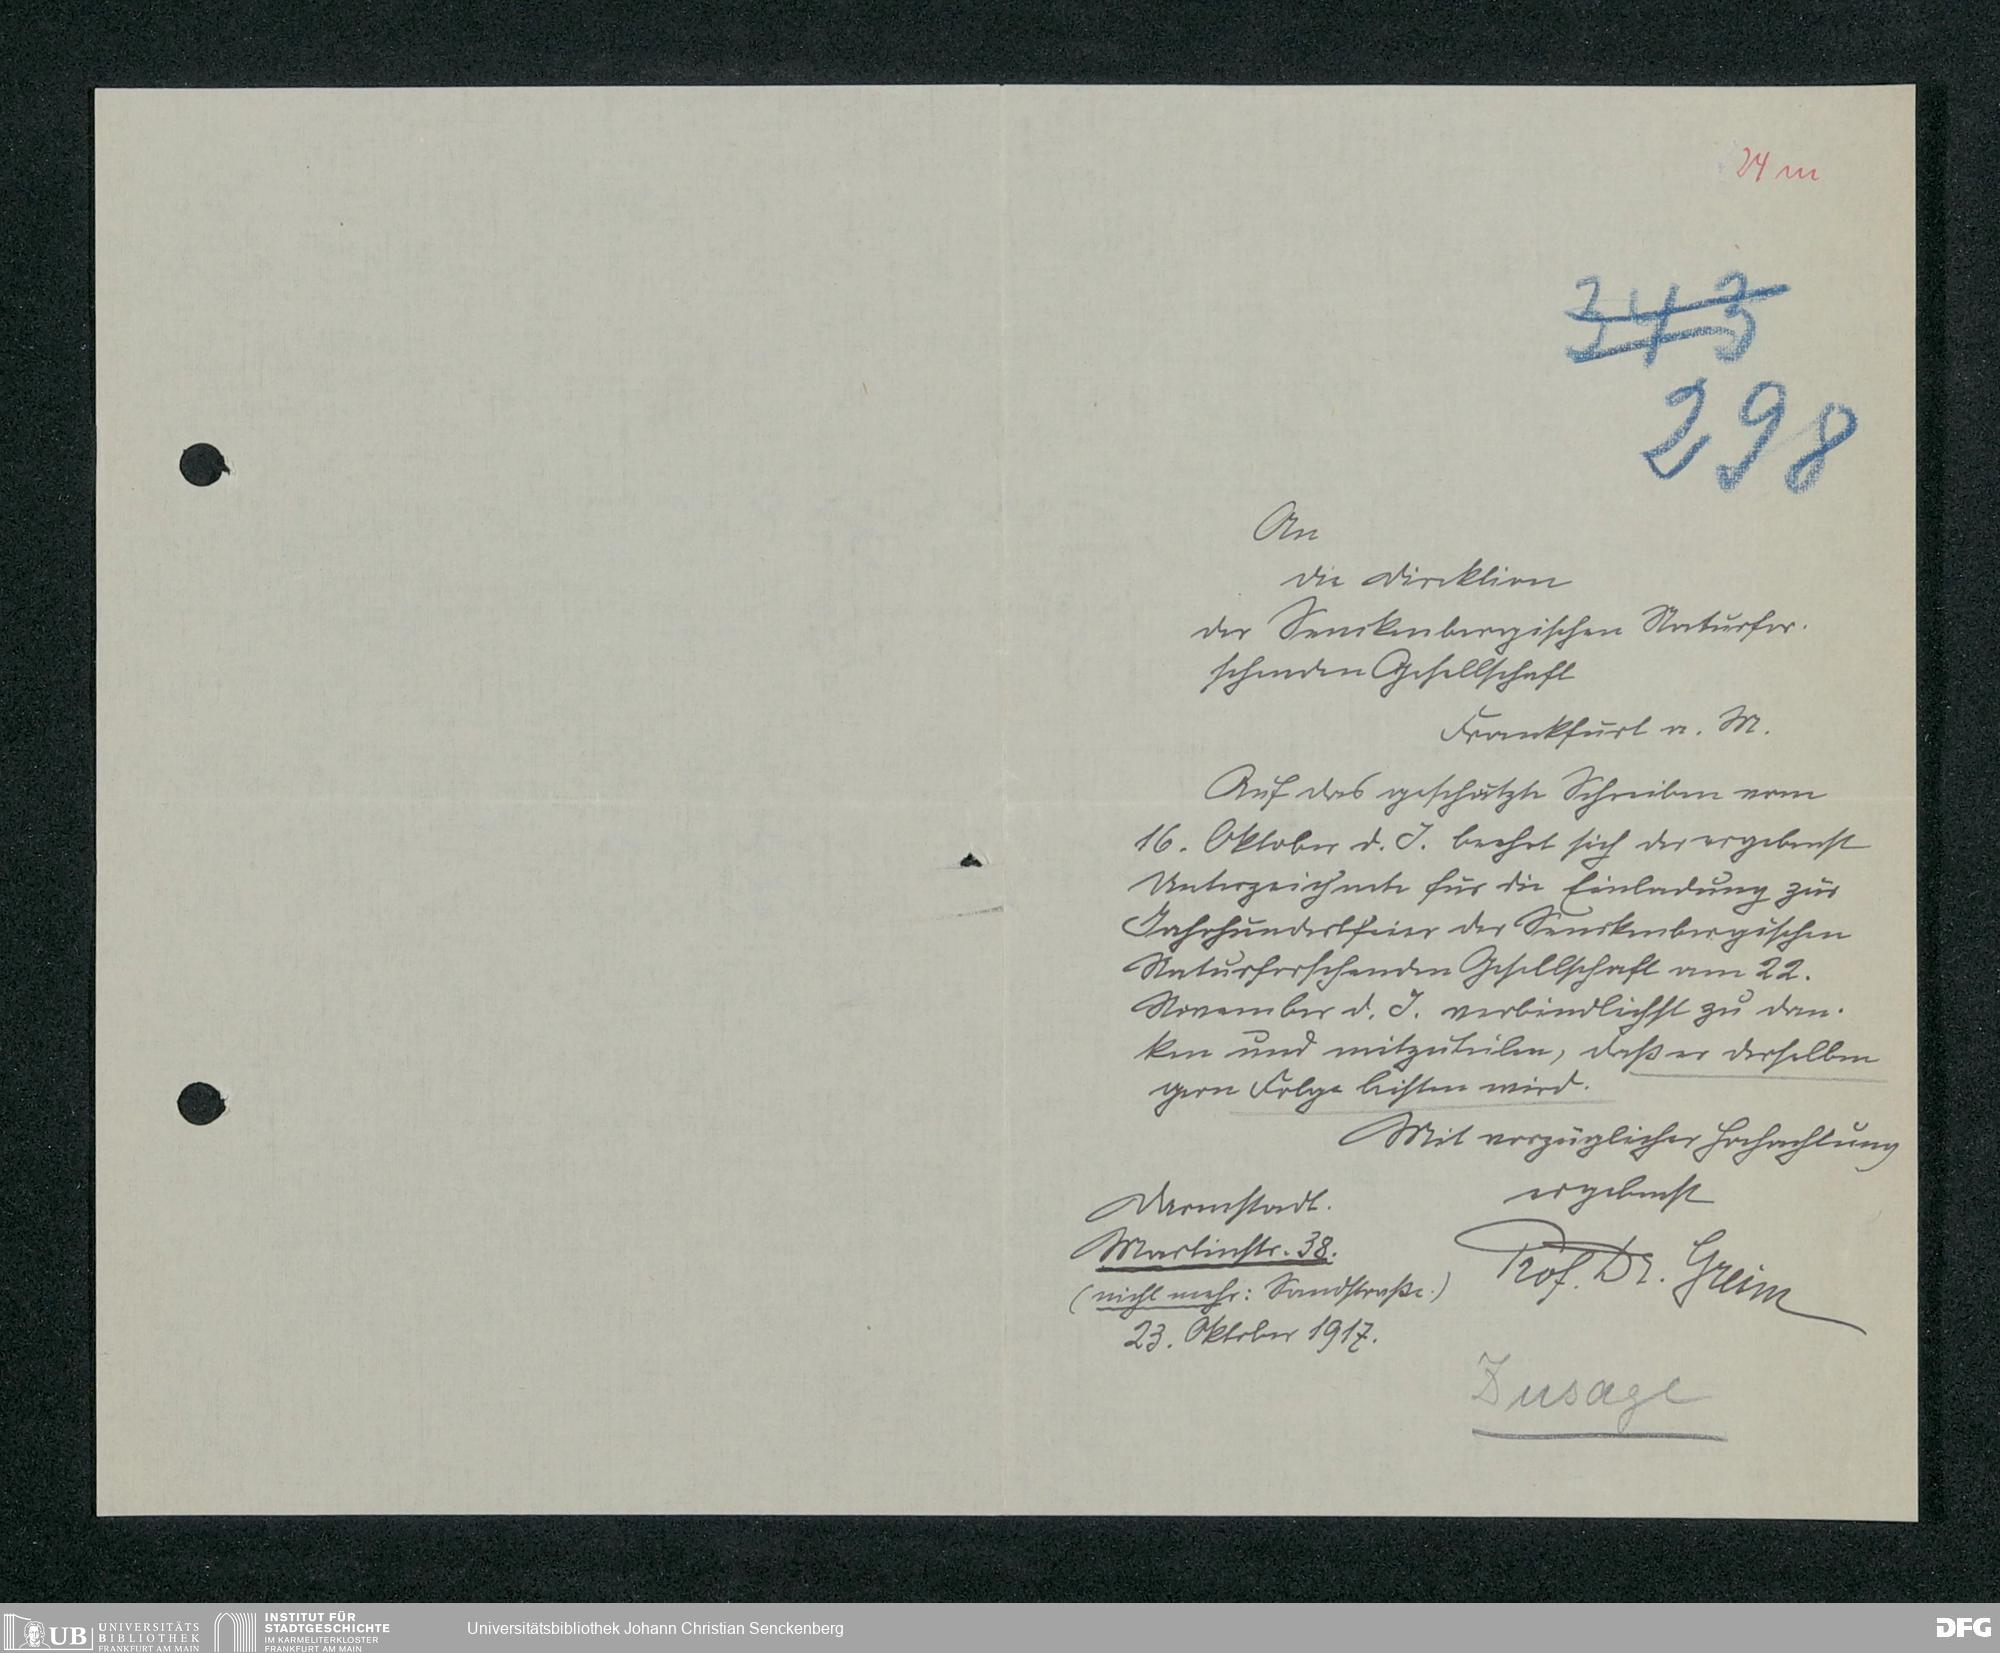 24 m
343
298
An
die Direktion
der Senckenbergischen Naturfor-
schenden Gesellschaft
Frankfurt a. M.
Auf das geschätzte Schreiben vom
16. Oktober d. J. beehrt sich der ergebenst
Unterzeichnete für die Einladung zur
Jahrhundertfeier der Senckenbergischen
Naturforschenden Gesellschaft am 22.
November d. J. verbindlichst zu dan-
ken und mitzuteilen, daß er derselben
gern Folge leisten wird.
Mit vorzüglicher Hochachtung
ergebenst
Prof. Dr. Greim
Darmstadt.
Martinstr. 38.
(nicht mehr: Sandstraße.)
23. Oktober 1917.
Zusage
UB UNIVERSITÄTS
BIBLIOTHEK
FRANKFURT AM MAIN
INSTITUT FÜR
STADTGESCHICHTE
IM KARMELITERKLOSTER
FRANKFURT AM MAIN
Universitätsbibliothek Johann Christian Senckenberg
DFG